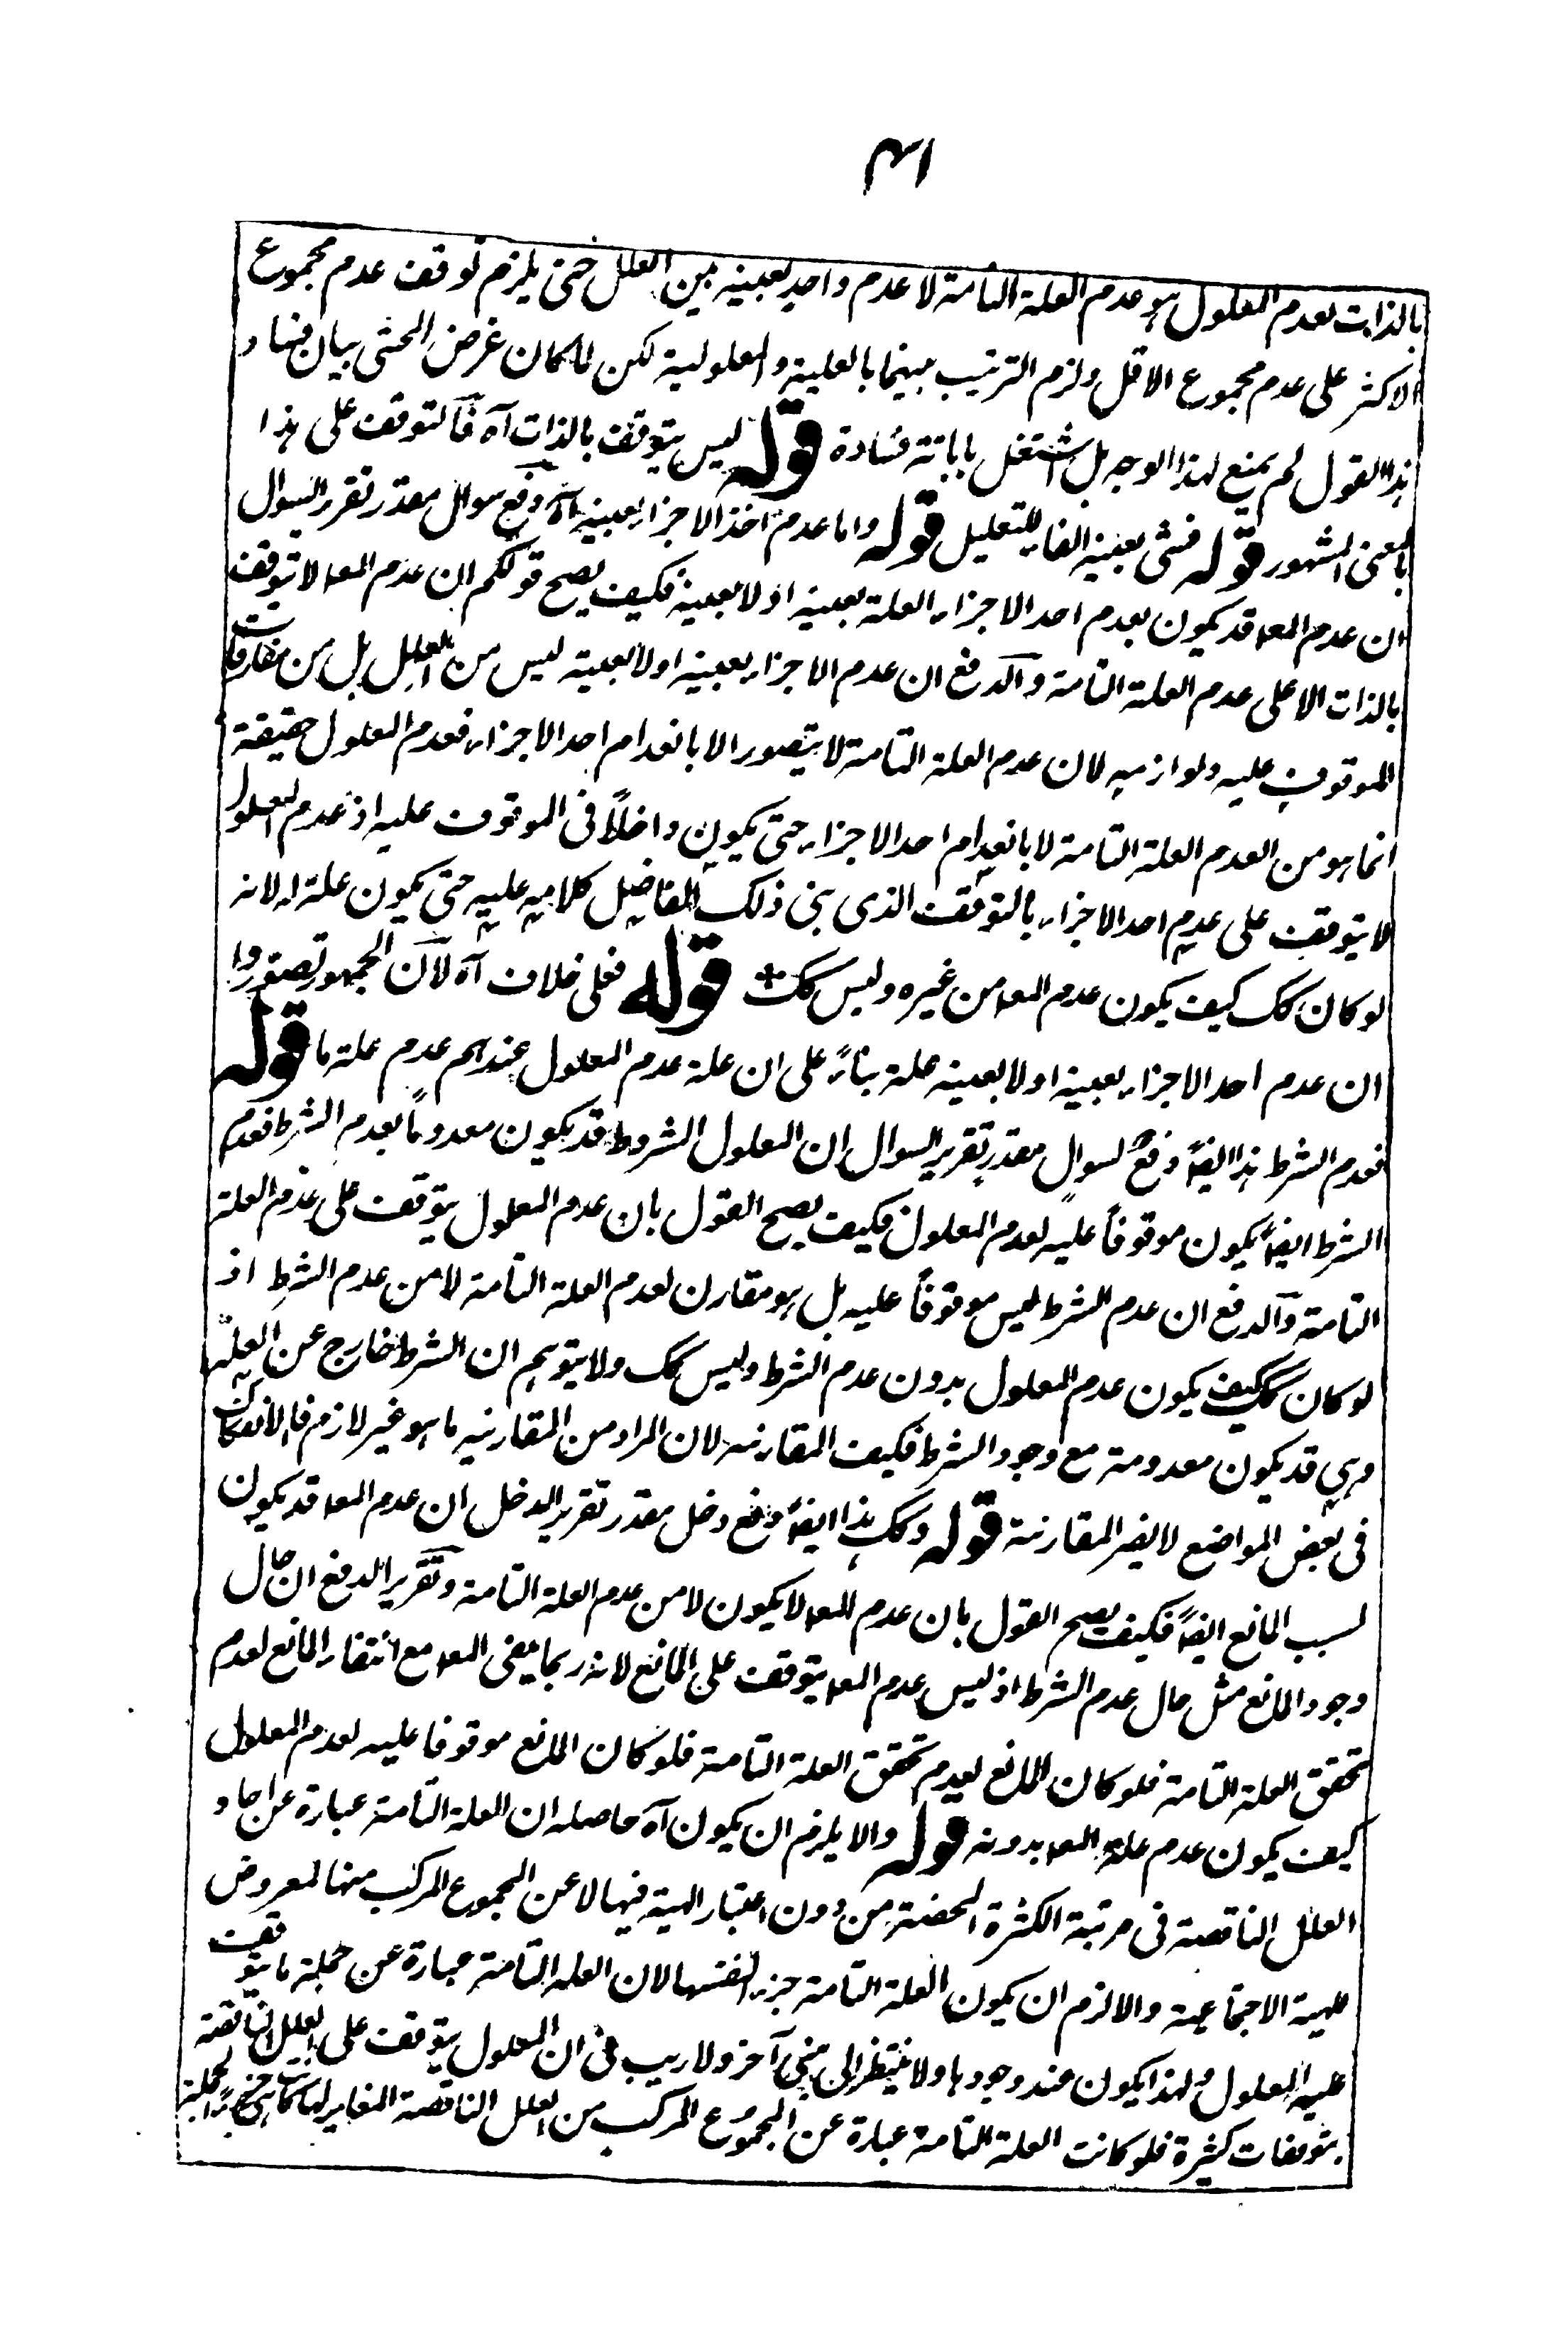 ۴۱
بالذات لعدم المعلول هو عدم العلة التامة لا عدم واحد بعينه من العلل حتى يلزم توقف عدم مجموع
الاكثر على عدم مجموع الاقل ولزم الترتيب بينهما بالعلية والمعلولية لكن لما كان غرض المحشى بيان فساد
هذا القول لم يمنع لهذا الوجه بل اشتغل باباتة فساده قوله ليس يتوقف بالذات آه فالتوقف على هذا
بالمعنى المشهور قوله فشى بعينه الفاء للتعليل قوله واما عدم احد الاجزاء بعينه آه دفع سوال مقدر تقرير السوال
ان عدم المعـ قد يكون بعدم احد الاجزاء العلة بعينه او لا بعينه فكيف يصح قولكم ان عدم المعـ لا يتوقف
بالذات الا على عدم العلة التامة والدفع ان عدم الاجزاء بعينه او لا بعينه ليس من العلل بل من مقارنات
الموقوف عليه ولوازمه لان عدم العلة التامة لا يتصور الا بانعدام احد الاجزاء فعدم المعلول حقيقة
انما هو من العدم العلة التامة لا بانعدام احد الاجزاء حتى يكون داخلاً فى الموقوف عليه اذ عدم المعلول
لا يتوقف على عدم احد الاجزاء بالتوقف الذى بنى ذلك الفاضل كلامه عليه حتى يكون علة له لانه
لو كان كك كيف يكون عدم المعـ من غيره وليس كك قوله فعلى خلاف آه لان الجمهور تصوروا
ان عدم احد الاجزاء بعينه او لا بعينه علة بناءً على ان علة عدم المعلول عندهم عدم علة ما قوله
فعدم الشرط هذا ايضاً دفع لسوال مقدر تقرير السوال ان المعلول المشروط قد يكون معدوماً بعدم الشرط فعدم
الشرط ايضاً يكون موقوفاً عليه لعدم المعلول فكيف يصح القول بان عدم المعلول يتوقف على عدم العلة
التامة والدفع ان عدم الشرط ليس موقوفاً عليه بل هو مقارن لعدم العلة التامة لا من عدم الشرط اذ
لو كان كك كيف يكون عدم المعلول بدون عدم الشرط وليس كك ولا يتوهم ان الشرط خارج عن العلة
وهى قد يكون معدومة مع وجود الشرط فكيف المقارنة لان المراد من المقارنة ما هو غير لازم فالانفكاك
فى بعض المواضع لا يضر المقارنة قوله وكك هذا ايضاً دفع دخل مقدر تقرير الدخل ان عدم المعـ قد يكون
لسبب المانع ايضاً فكيف يصح القول بان عدم المعـ لا يكون لا من عدم العلة التامة وتقرير الدفع ان حال
وجود المانع مثل حال عدم الشرط اذ ليس عدم المعـ يتوقف على المانع لانه ربما ينفى المعـ مع انتفاء المانع لعدم
تحقق العلة التامة فلو كان المانع لعدم تحقق العلة التامة فلو كان المانع موقوفا عليه لعدم المعلول
كيف يكون عدم علة المعـ بدونه قوله والا يلزم ان يكون آه حاصله ان العلة التامة عبارة عن احاد
العلل الناقصة فى مرتبة الكثرة المحضة من دون اعتبار الهيئة فيها لا عن المجموع المركب منها المعروض
للهيئة الاجتماعية والا لزم ان يكون العلة التامة جزء لنفسها لان العلة التامة عبارة عن جملة ما يتوقف
عليه المعلول ولهذا يكون عند وجودها ولا ينتظر الى شئ آخر ولا ريب فى ان المعلول يتوقف على العلل الناقصة
بتوقفات كثيرة فلو كانت العلة التامة عبارة عن المجموع المركب من العلل الناقصة المغاير لها